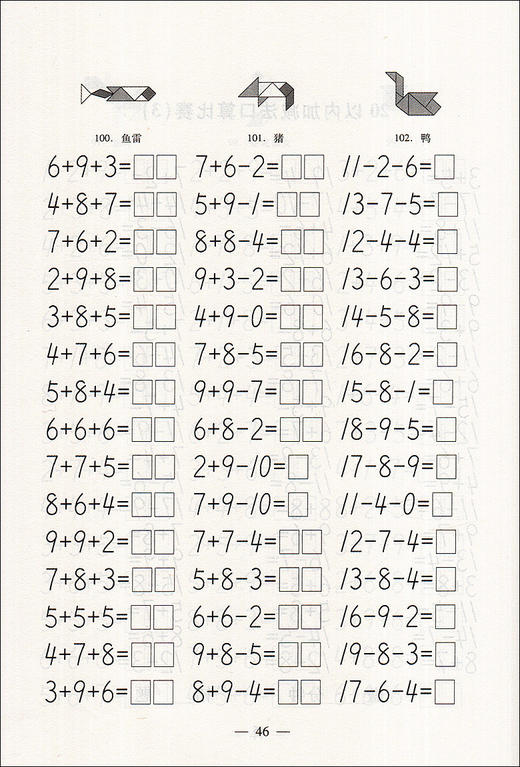 100. 鱼雷 101. 猪 102. 鸭
6+9+3=□□ 7+6-2=□□ 11-2-6=□
4+8+7=□□ 5+9-1=□□ 13-7-5=□
7+6+2=□□ 8+8-4=□□ 12-4-4=□
2+9+8=□□ 9+3-2=□□ 13-6-3=□
3+8+5=□□ 4+9-0=□□ 14-5-8=□
4+7+6=□□ 7+8-5=□□ 16-8-2=□
5+8+4=□□ 9+9-7=□□ 15-8-1=□
6+6+6=□□ 6+8-2=□□ 18-9-5=□
7+7+5=□□ 2+9-10=□ 17-8-9=□
8+6+4=□□ 7+9-10=□ 11-4-0=□
9+9+2=□□ 7+7-4=□□ 12-7-4=□
7+8+3=□□ 5+8-3=□□ 13-8-4=□
5+5+5=□□ 6+6-2=□□ 16-9-2=□
4+7+8=□□ 9+8-5=□□ 19-8-3=□
3+9+6=□□ 8+9-4=□□ 17-6-4=□
— 46 —